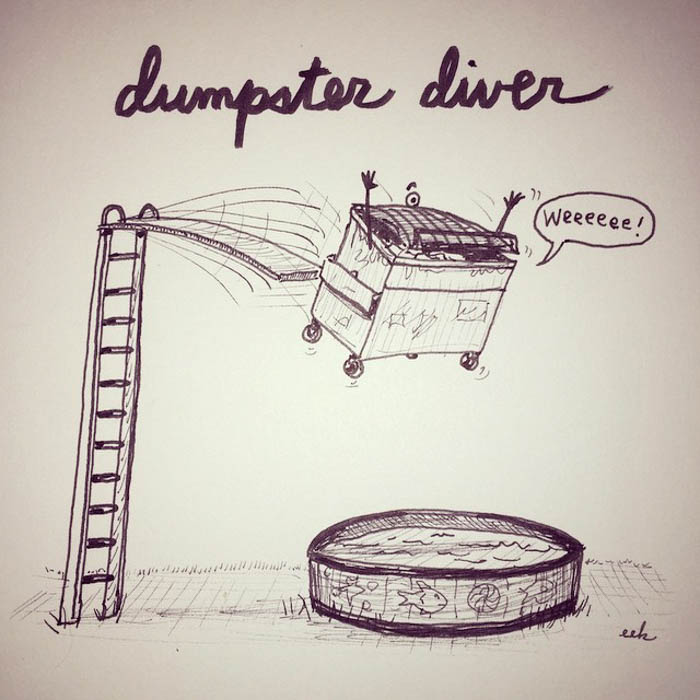 dumpster diver
Weeeeee!
eek